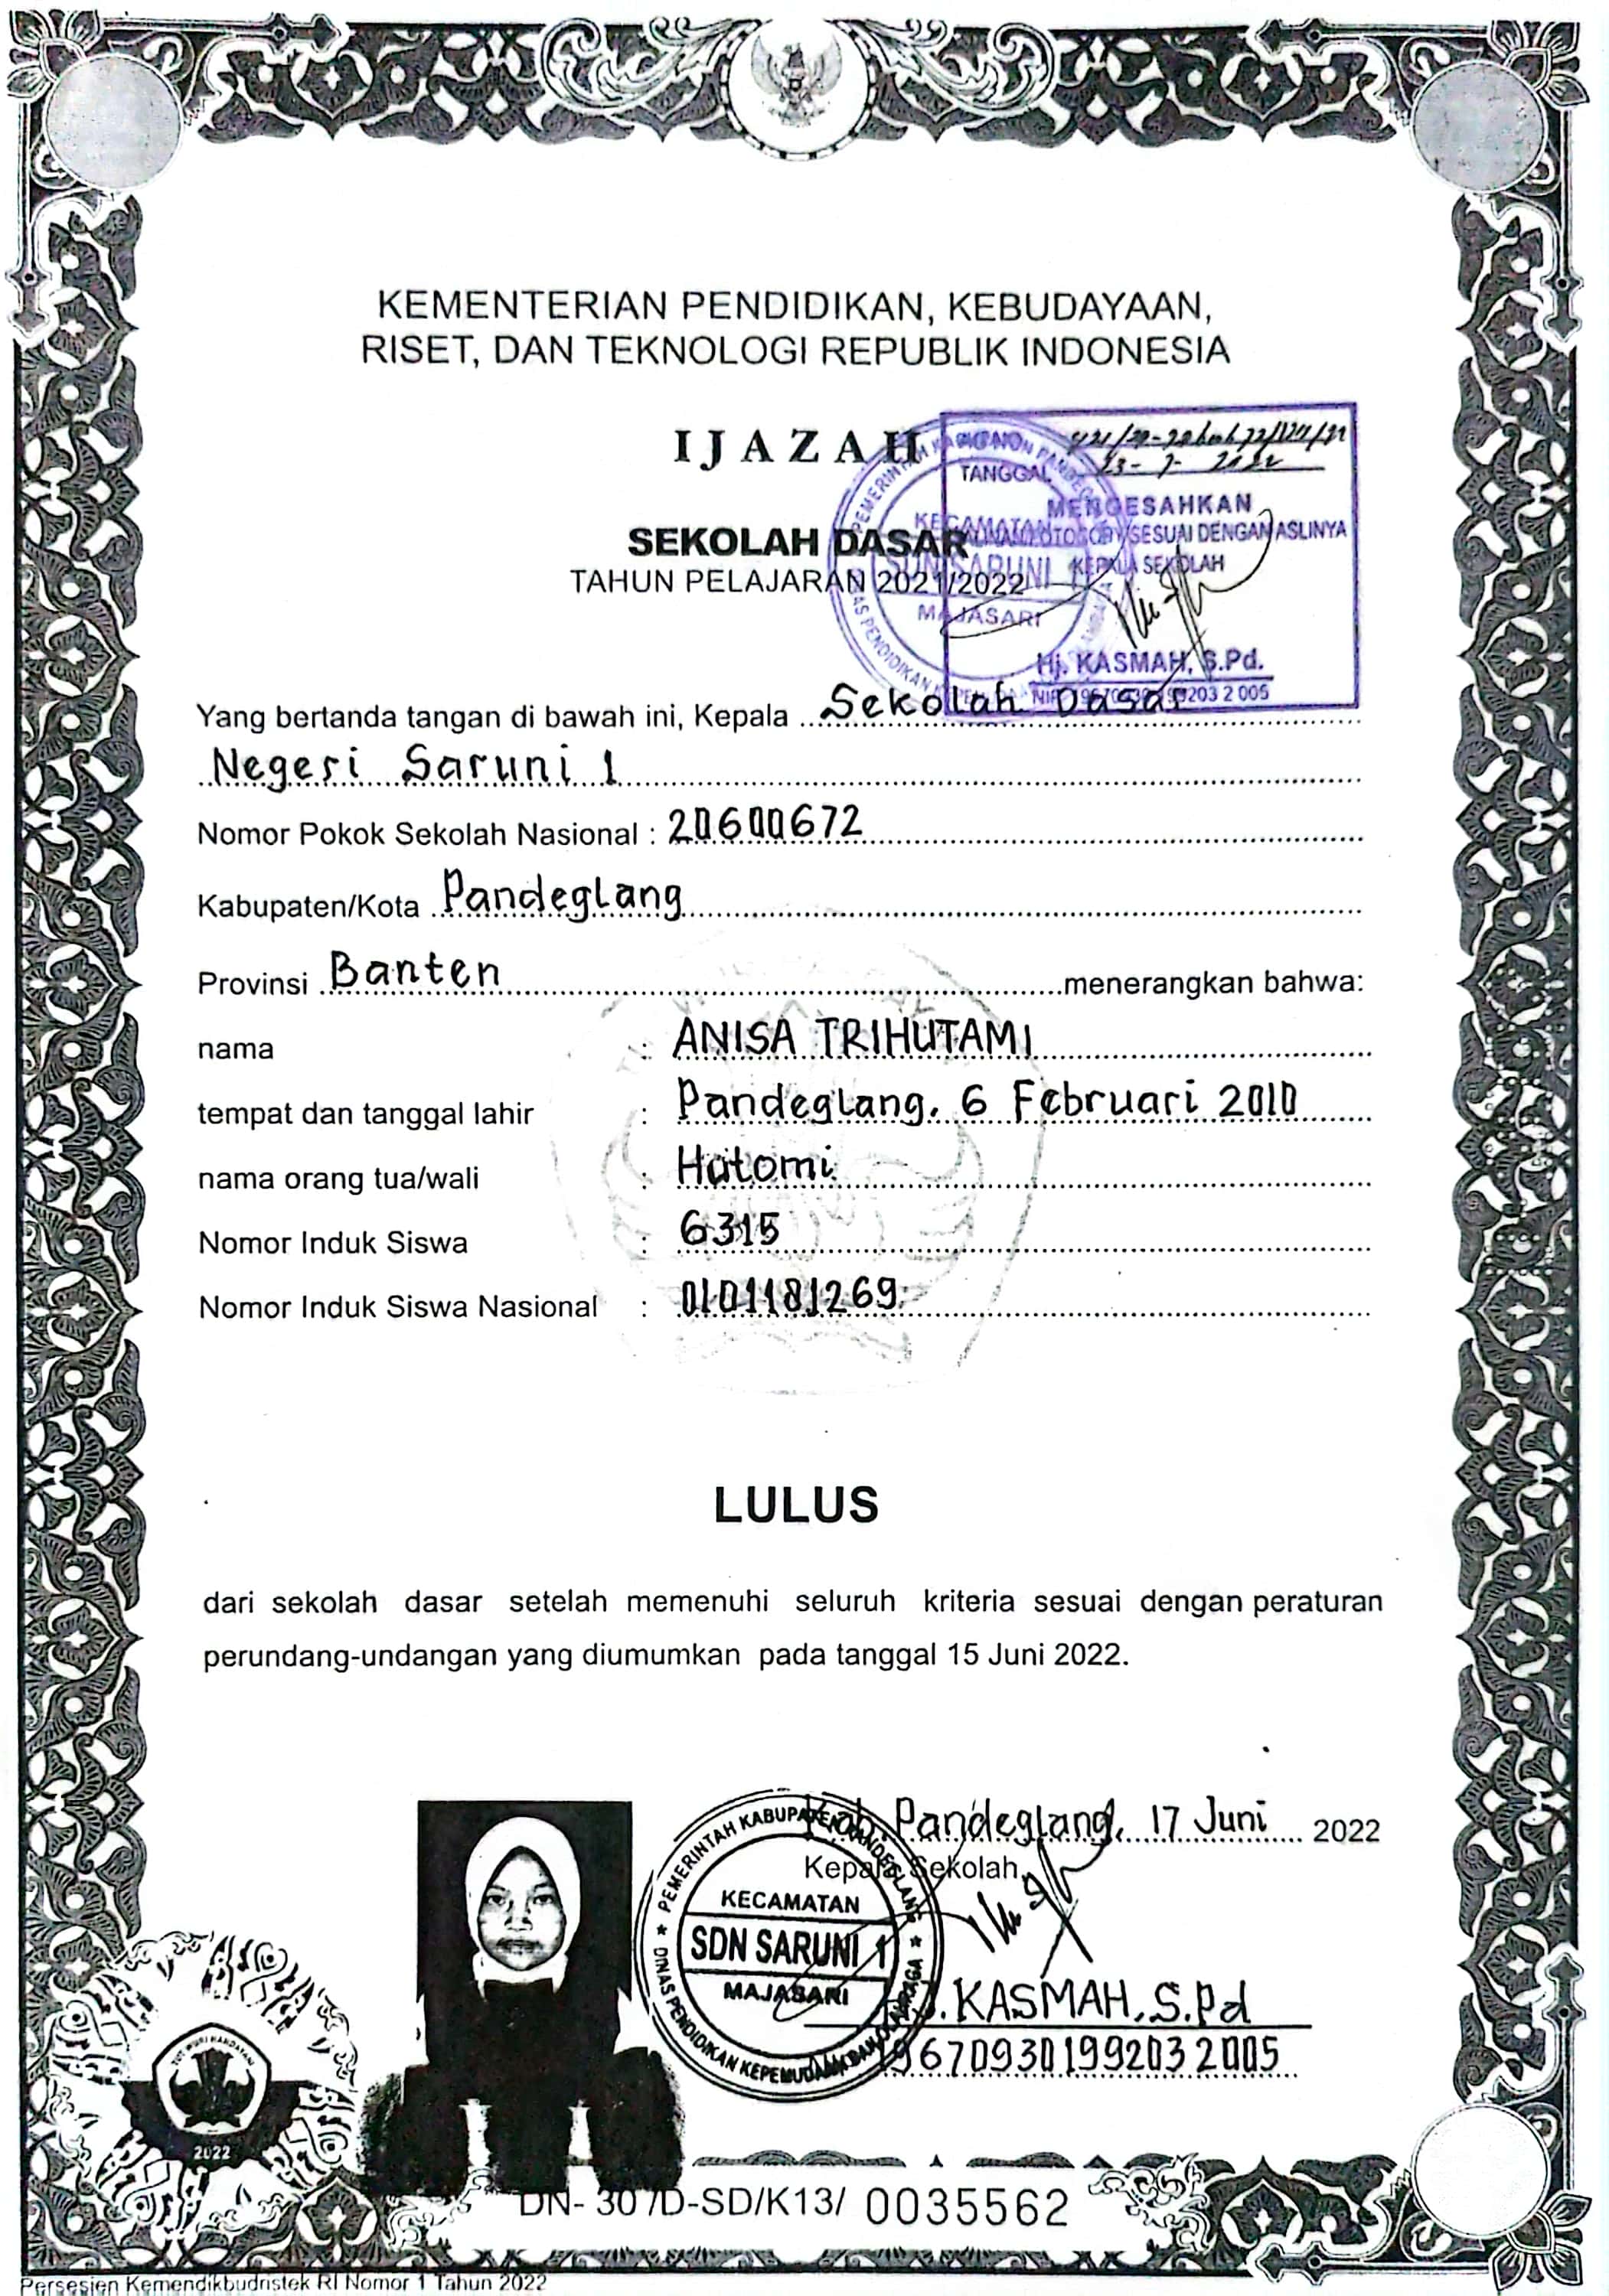 KEMENTERIAN PENDIDIKAN, KEBUDAYAAN,
RISET, DAN TEKNOLOGI REPUBLIK INDONESIA
IJAZAH
TANGGAL 23-7-2022
MENGESAHKAN
SESUAI DENGAN ASLINYA
KEPALA SEKOLAH
Hj. KASMAH, S.Pd.
NIP. 19670930 199203 2 005
KECAMATAN
SDN SARUNI 1
MAJASARI
SEKOLAH DASAR
TAHUN PELAJARAN 2021/2022
Yang bertanda tangan di bawah ini, Kepala Sekolah Dasar
Negeri Saruni 1
Nomor Pokok Sekolah Nasional : 20600672
Kabupaten/Kota Pandeglang
Provinsi Banten menerangkan bahwa:
nama : ANISA TRIHUTAMI
tempat dan tanggal lahir : Pandeglang, 6 Februari 2010
nama orang tua/wali : Hutomi
Nomor Induk Siswa : 6315
Nomor Induk Siswa Nasional : 0101181269
LULUS
dari sekolah dasar setelah memenuhi seluruh kriteria sesuai dengan peraturan
perundang-undangan yang diumumkan pada tanggal 15 Juni 2022.
Kab. Pandeglang, 17 Juni 2022
Kepala Sekolah,
PEMERINTAH KABUPATEN PANDEGLANG
KECAMATAN
SDN SARUNI 1
MAJASARI
DINAS PENDIDIKAN KEPEMUDAAN DAN OLAHRAGA
KASMAH, S.Pd
196709301992032005
TUT WURI HANDAYANI
2022
DN- 30 /D-SD/K13/ 0035562
Persesjen Kemendikbudristek RI Nomor 1 Tahun 2022